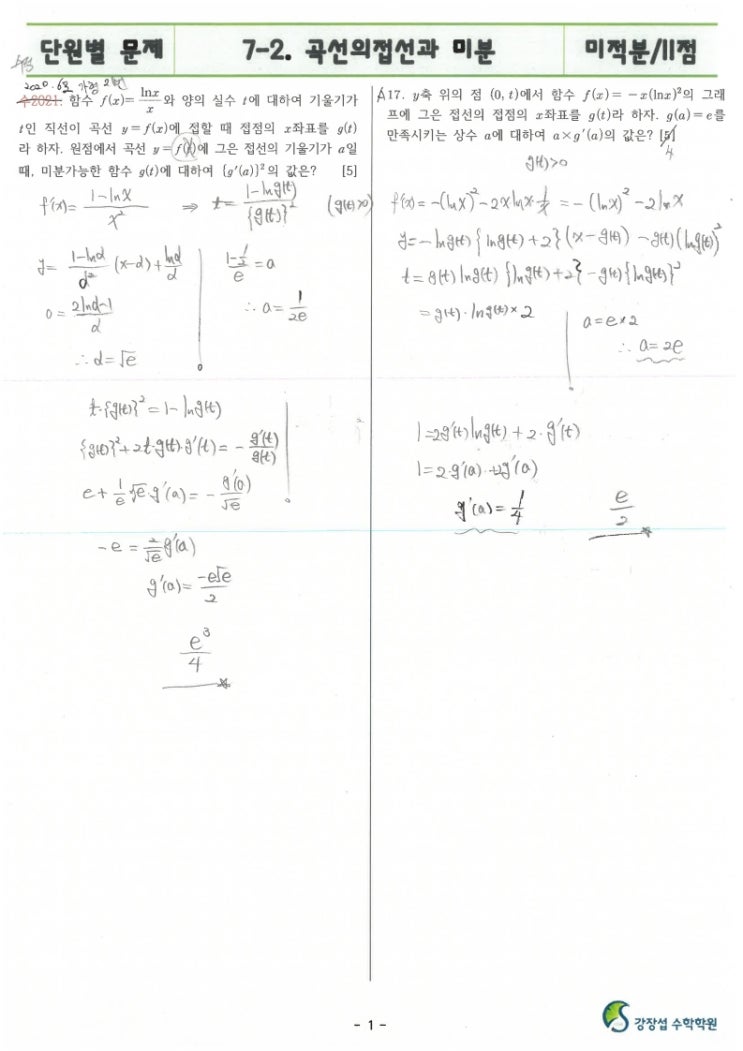 단원별 문제
7-2. 곡선의접선과 미분
미적분/II점
수정
2020. 6월 가형 21번
수2021. 함수 f(x)= lnx/x 와 양의 실수 t에 대하여 기울기가
t인 직선이 곡선 y=f(x)에 접할 때 접점의 x좌표를 g(t)
라 하자. 원점에서 곡선 y=f(x)에 그은 접선의 기울기가 a일
때, 미분가능한 함수 g(t)에 대하여 {g′(a)}²의 값은? [5]
f′(x)= (1-lnx)/x² ⇒ t= (1-lng(t))/{g(t)}² (g(t)>0)
y= (1-lnα)/α² (x-α)+ lnα/α
0= (2lnα-1)/α
∴ α=√e
(1-1/2)/e =a
∴ a= 1/2e
t·{g(t)}²=1-lng(t)
{g(t)}²+2t·g(t)·g′(t)= - g′(t)/g(t)
e+ 1/e √e·g′(a)= - g′(a)/√e
-e = 2/√e g′(a)
g′(a)= -e√e/2
e³/4
A17. y축 위의 점 (0, t)에서 함수 f(x)=-x(lnx)²의 그래
프에 그은 접선의 접점의 x좌표를 g(t)라 하자. g(a)=e를
만족시키는 상수 a에 대하여 a×g′(a)의 값은? [5]
4
g(t)>0
f′(x)=-(lnx)²-2xlnx·1/x =-(lnx)²-2lnx
y=-lng(t){lng(t)+2}(x-g(t)) -g(t)(lng(t))²
t=g(t)lng(t){lng(t)+2}-g(t){lng(t)}²
=g(t)·lng(t)×2
a=e×2
∴ a=2e
1=2g′(t)lng(t)+2·g′(t)
1=2·g′(a)+2g′(a)
g′(a)= 1/4
e/2
- 1 -
강장섭 수학학원